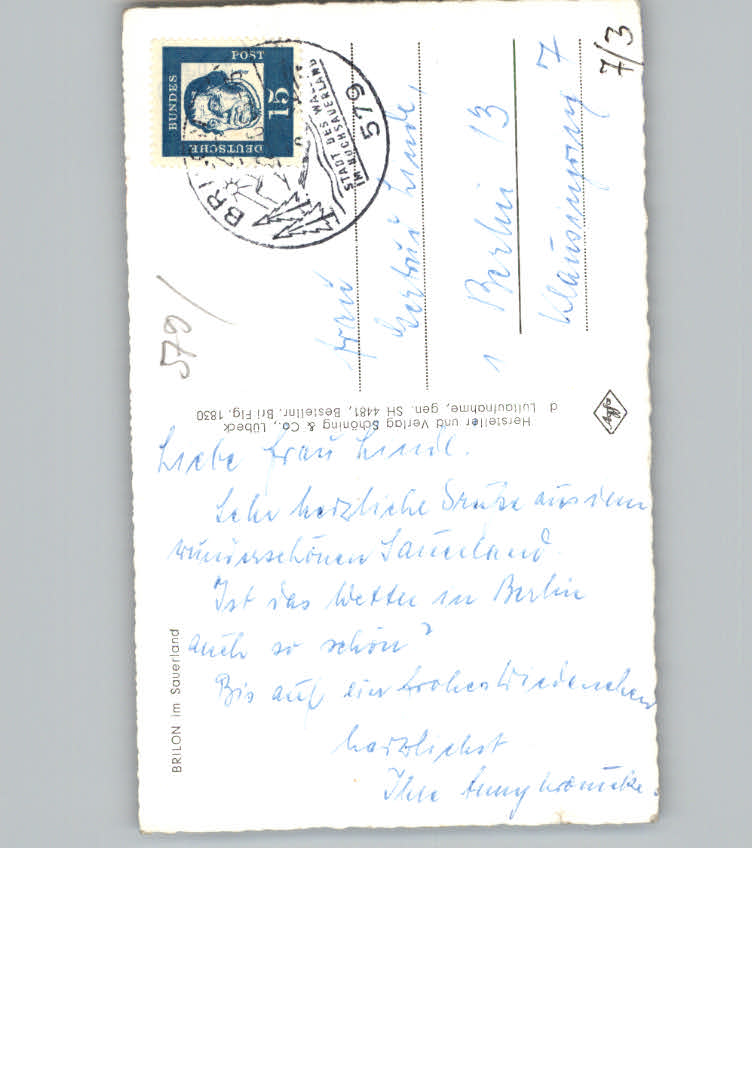 BUNDES
POST
15
DEUTSCHE
BRI
STADT DES WA
IM HOCHSAUERLAND
579
7/3
579/
Frau
Gertrud Linde,
1 Berlin 13
7
Hersteller und Verlag Schöning & Co., Lübeck
d Luftaufnahme, gen. SH 4481, Bestellnr. Bri Flg. 1830
Agfa
Liebe Frau Linde.
Sehr herzliche Grüße aus dem
wunderschönen Sauerland.
Ist das Wetter in Berlin
auch so schön?
Bis auf ein frohes Wiedersehen
herzlichst
Ihre Anny
BRILON im Sauerland